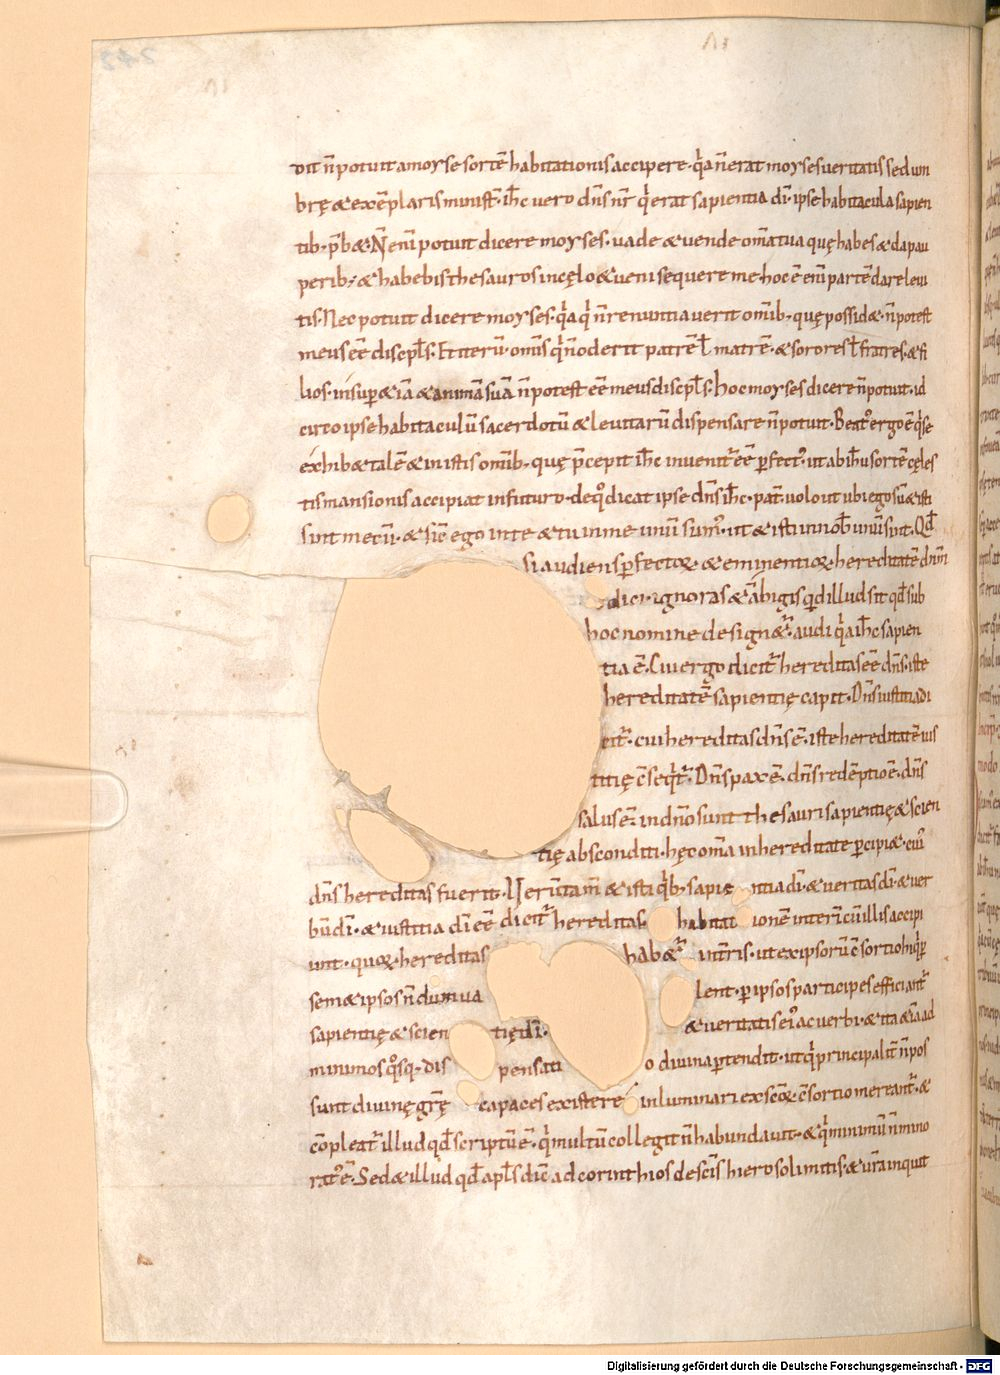 dit n̄ potuit a moyse sortē habitationis accipere· q̄a n̄ erat moyses ueritatis sed um
brę & exēplaris minist̄· ih̄c uero dn̄s nr̄ q̄ erat sapientia dī· ipse habitacula sapien
tib; p̄b&· N̄ enī potuit dicere moyses· uade & uende om̄a tua quę habes & da pau
perib; & habebis thesauros in cęlo & ueni sequere me· hoc ē enī partē dare leui
tis· Nec potuit dicere moyses· q̄a q̄ n̄ renuntiauerit om̄ib; quę possid&· n̄ potest
meus eē discipl̄s· Et iterū· om̄is q̄ n̄ oderit patrē l̄ matrē· & sorores l̄ fratres· & fi
lios· insup & iā & animā suā n̄ potest eē meus discpl̄s· hoc moyses dicere n̄ potuit· id
circo ipse habitaculū sacerdotū & leuitarū dispensare n̄ potuit· Beat' ergo ē q̄ se
exhib& talē & in istis om̄ib; quę p̄cepit ih̄c inuenit̄ eē pfect'· ut ab ih̄u sortē cęles
tis mansionis accipiat in futuro· de q° dicat ipse dn̄s ih̄c· pat̄ uolo ut ubi ego sū & isti
sint mecū· & sic̄ ego in te & tu in me unū sum'· ut & isti in nob̄ unū sint· Qd̄
si audiens pfectoꝝ & eminentioꝝ hereditatē dn̄m
dici· ignoras & ābigis qd illud sit qd̄ sub
hoc nomine design&̄· audi q̄a ih̄c sapien
tia ē· Cui ergo dicit̄ hereditas eē dn̄s· iste
hereditatē sapientię capit· Dn̄s iustitia di
cit̄· cui hereditas dn̄s ē· iste hereditatē ius
titię c̄seq̄t̄· Dn̄s pax ē· dn̄s redēptio ē· dn̄s
salus ē· in dn̄o sunt thesauri sapientię & scien
tię absconditi· hęc om̄a in hereditate pcipi&· cui'
dn̄s hereditas fuerit· Uerūtam̄ & isti q̄b; sapie ntia dī· & ueritas dī· & uer
bū dī· & iustitia dī eē dicit̄ hereditas habitat ionē interī cū illis accipi
unt· quoꝝ hereditas hab&̄ in t̄ris· ut ex ipsorū c̄sortio hi q̄ p
sem & ipsos n̄dum ua lent· p ipsos participes efficiant̄
sapientię & scien tię dī· & ueritatis ei' ac uerbi· & ita & iā ad
minimos q°sq; dis pensati o diuina ptendit· ut q̄ principalit̄ n̄ pos
sunt diuinę gr̄ę capaces existere in luminari ex sc̄oꝝ c̄sortio mereant̄· &
cōpleat̄ illud qd̄ scriptū ē· q̄ multū collegit n̄ habundauit· & q̄ minimū n̄ mino
rat' ē· Sed & illud qd̄ apl̄s dic̄ ad corinthios de sc̄is hierosolimitis· & ur̄a inquit
Digitalisierung gefördert durch die Deutsche Forschungsgemeinschaft - DFG